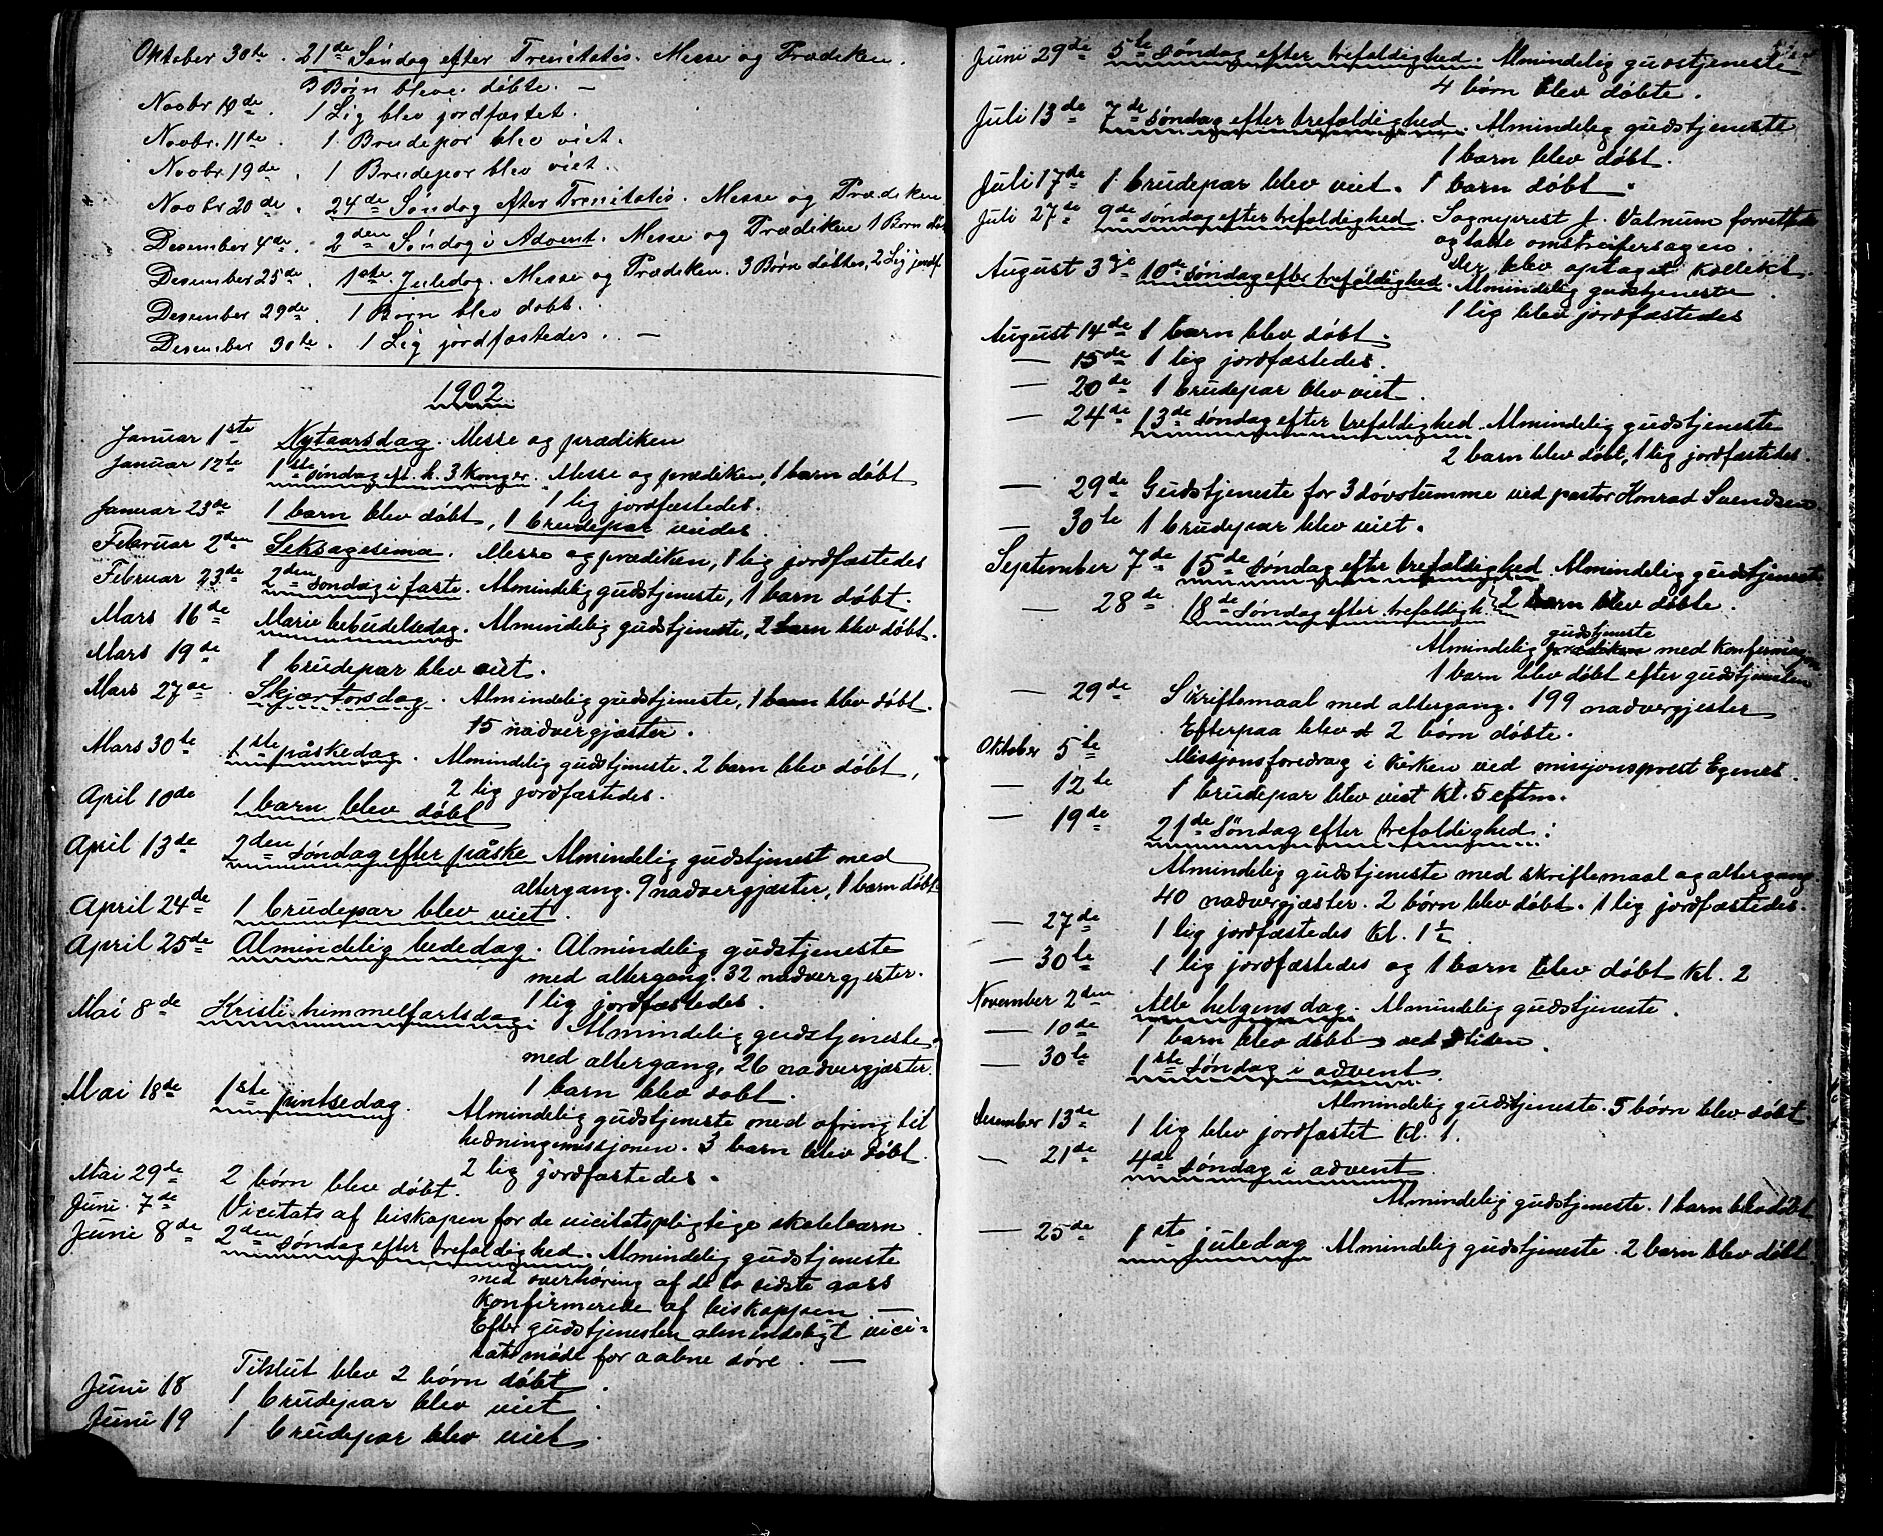 Oktober 30te. 21de Søndag efter Trenitatis. Messe og Prædiken.
3 Børn bleve døbte. —
Novbr. de. 1 Lig blev jordfæstet.
Novbr. 11te. 1 Brudepar blev viet.
Novbr. 19de. 1 Brudepar blev viet.
Novbr 20de. 24de Søndag efter Trenitatis. Messe og Prædiken
Desember 4de. 2den Søndag i Advent. Messe og Prædiken 1 Børn døb
Desember 25de. 1ste Juledag. Messe og Prædiken. 3 Børn døbtes, 2 Lig jordf
Desember 29de. 1 Børn blev døbt.
Desember 30te. 1 Lig jordfæstedes. —
1902
Januar 1ste Nytaarsdag. Messe og prædiken
Januar 12te 1ste søndag eft. h. 3 konger. Messe og prædiken, 1 barn døbt
1 lig jordfæstedes.
Januar 23de 1 barn blev døbt, 1 brudepar viedes.
Februar 2den Seksagesima. Messe og prædiken, 1 lig jordfæstedes
Februar 23de 2den søndag i faste. Almindelig gudstjeneste, 1 barn døbt.
Mars 16de Marie bebudelsedag. Almindelig gudstjeneste, 2 barn blev døbt.
Mars 19de 1 brudepar blev viet.
Mars 27de Skjærtorsdag. Almindelig gudstjeneste, 1 barn blev døbt.
15 nadvergjæster.
Mars 30te 1ste påskedag. Almindelig gudstjeneste. 2 barn blev døbt,
2 lig jordfæstedes.
April 10de 1 barn blev døbt
April 13de 2den søndag efter påske Almindelig gudstjenest med
altergang. 9 nadvergjæster, 1 barn døbt
April 24de 1 brudepar blev viet.
April 25de Almindelig bededag. Almindelig gudstjeneste
med altergang. 32 nadvergjester.
1 lig jordfæstedes.
Mai 8de Kristi himmelfartsdag. Almindelig gudstjeneste
med altergang, 26 nadvergjæster.
1 barn blev døbt.
Mai 18de 1ste pintsedag. Almindelig gudstjeneste med ofring til
hedningemissjonen. 3 barn blev døbt.
2 lig jordfæstedes.
Mai 29de 2 børn blev døbt.
Juni. 7de Vicitats af biskapen for de vicitatspligtige skolebarn.
Juni 8de 2den søndag efter trefoldighed. Almindelig gudstjeneste
med overhøring af de to sidste aars
konfirmerede af biskappen —
Efter gudstjenesten almindeligt vici-
tatsmøde for aabne døre. —
Tilslut blev 2 børn døbt.
Juni 18 1 brudepar blev viet.
Juni 19 1 brudepar blev viet.
Juni 29de 5te søndag efter trefoldighed. Almindelig gudstjeneste
4 børn blev døbte.
Juli 13de 7de søndag efter trefoldighed. Almindelig gudstjeneste
1 barn blev døbt.
Juli 17de 1 brudepar blev viet. 1 barn døbt.
Juli 27de 9de søndag efter trefoldighed. Sogneprest J. Valnum forrettede
og talte omstreifersagen.
Der blev optaget kollekt.
August 3dje 10de søndag efter trefoldighed. Almindelig gudstjeneste.
1 lig blev jordfæstedes
August 14de 1 barn blev døbt.
— 15de 1 lig jordfæstedes.
— 20de 1 brudepar blev viet.
— 24de 13de søndag efter trefoldighed. Almindelig gudstjeneste
2 barn blev døbt, 1 lig jordfæstedes.
— 29de Gudstjeneste for 3 døvstumme ved pastor Konrad Svendsen.
— 30te 1 brudepar blev viet.
September 7de 15de søndag efter trefoldighed. Almindelig gudstjeneste
2 barn blev døbte.
— 28de 18de søndag efter trefoldigh.
gudstjeneste
Almindelig prædiken med konfirmasjon
1 barn blev døbt efter gudstjenesten
— 29de Skriftemaal med altergang. 199 nadvergjester
Efterpaa blev 2 børn døbte.
Oktober 5te Missjonsforedrag i kirken ved misjonsprest Egenes.
— 12te 1 brudepar blev viet kl. 5 eftm.
— 19de 21de søndag efter trefoldighed:
Almindelig gudstjeneste med skriftemaal og altergang.
40 nadvergjæster. 2 børn blev døbt. 1 lig jordfæstedes.
— 27de 1 lig jordfæstedes kl. 1½
— 30te 1 lig jordfæstedes og 1 barn blev døbt kl. 2
November 2den Alle helgens dag. Almindelig gudstjeneste.
— 10de 1 barn blev døbt ved 2 tiden.
— 30te 1ste søndag i advent.
Almindelig gudstjeneste. 5 børn blev døbt.
Desember 13de 1 lig blev jordfæstet kl. 1.
— 21de 4de søndag i advent.
Almindelig gudstjeneste. 1 barn blev døbt
— 25de 1ste juledag. Almindelig gudstjeneste. 2 barn blev døbt.